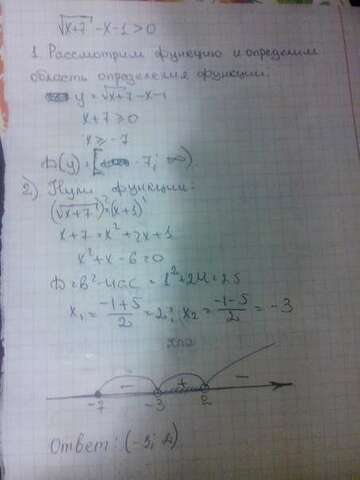 √x+7 - x - 1 > 0
1. Рассмотрим функцию и определим
область определения функции.
y = √x+7 - x - 1
x + 7 ≥ 0
x ≥ -7
D(y) = [-7; ∞)
2) Нули функции:
(√x+7)² = (x+1)²
x + 7 = x² + 2x + 1
x² + x - 6 = 0
D = b² - 4ac = 1² + 24 = 25
x₁ = (-1+5)/2 = 2; x₂ = (-1-5)/2 = -3
- + -
-7 -3 2
Ответ: (-3; 2)